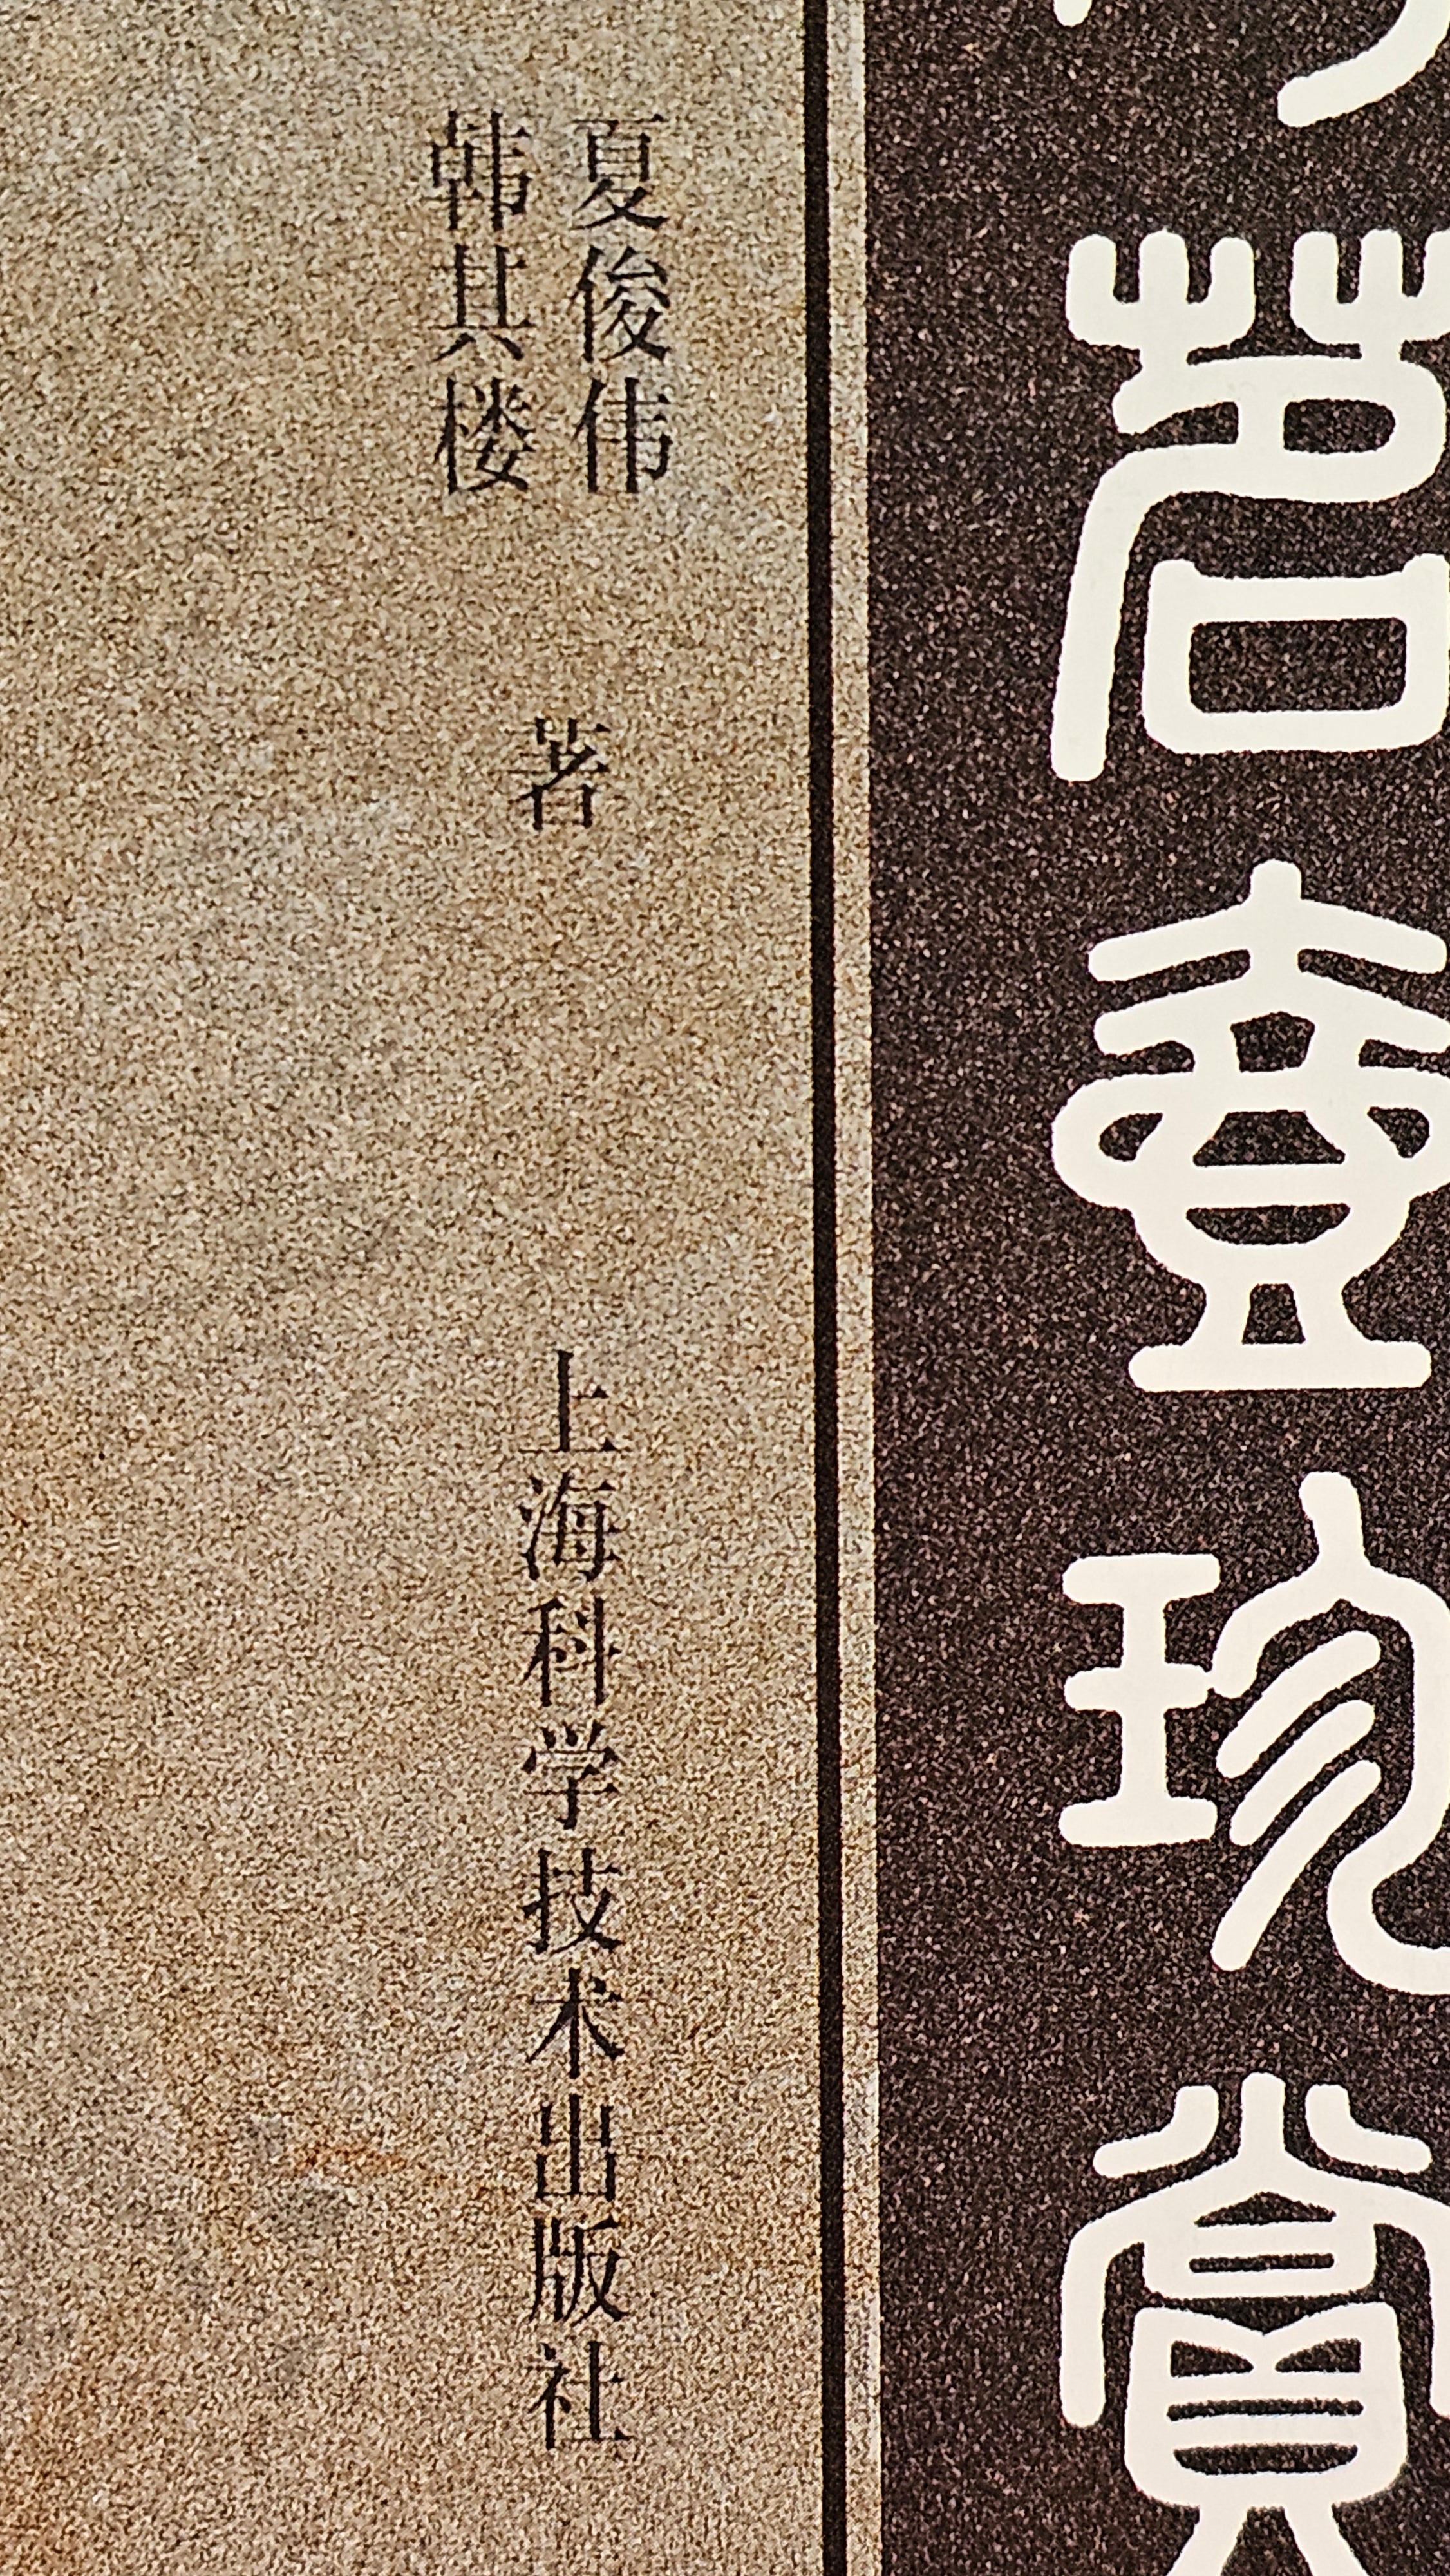 茗壶珍赏
夏俊伟
韩其楼
著
上海科学技术出版社